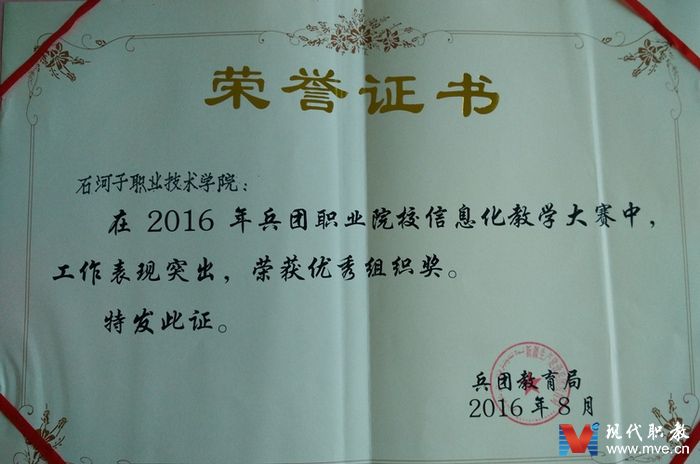 荣誉证书
石河子职业技术学院：
在 2016 年兵团职业院校信息化教学大赛中，
工作表现突出，荣获优秀组织奖。
特发此证。
兵团教育局
2016 年 8 月
现代职教
www.mve.cn